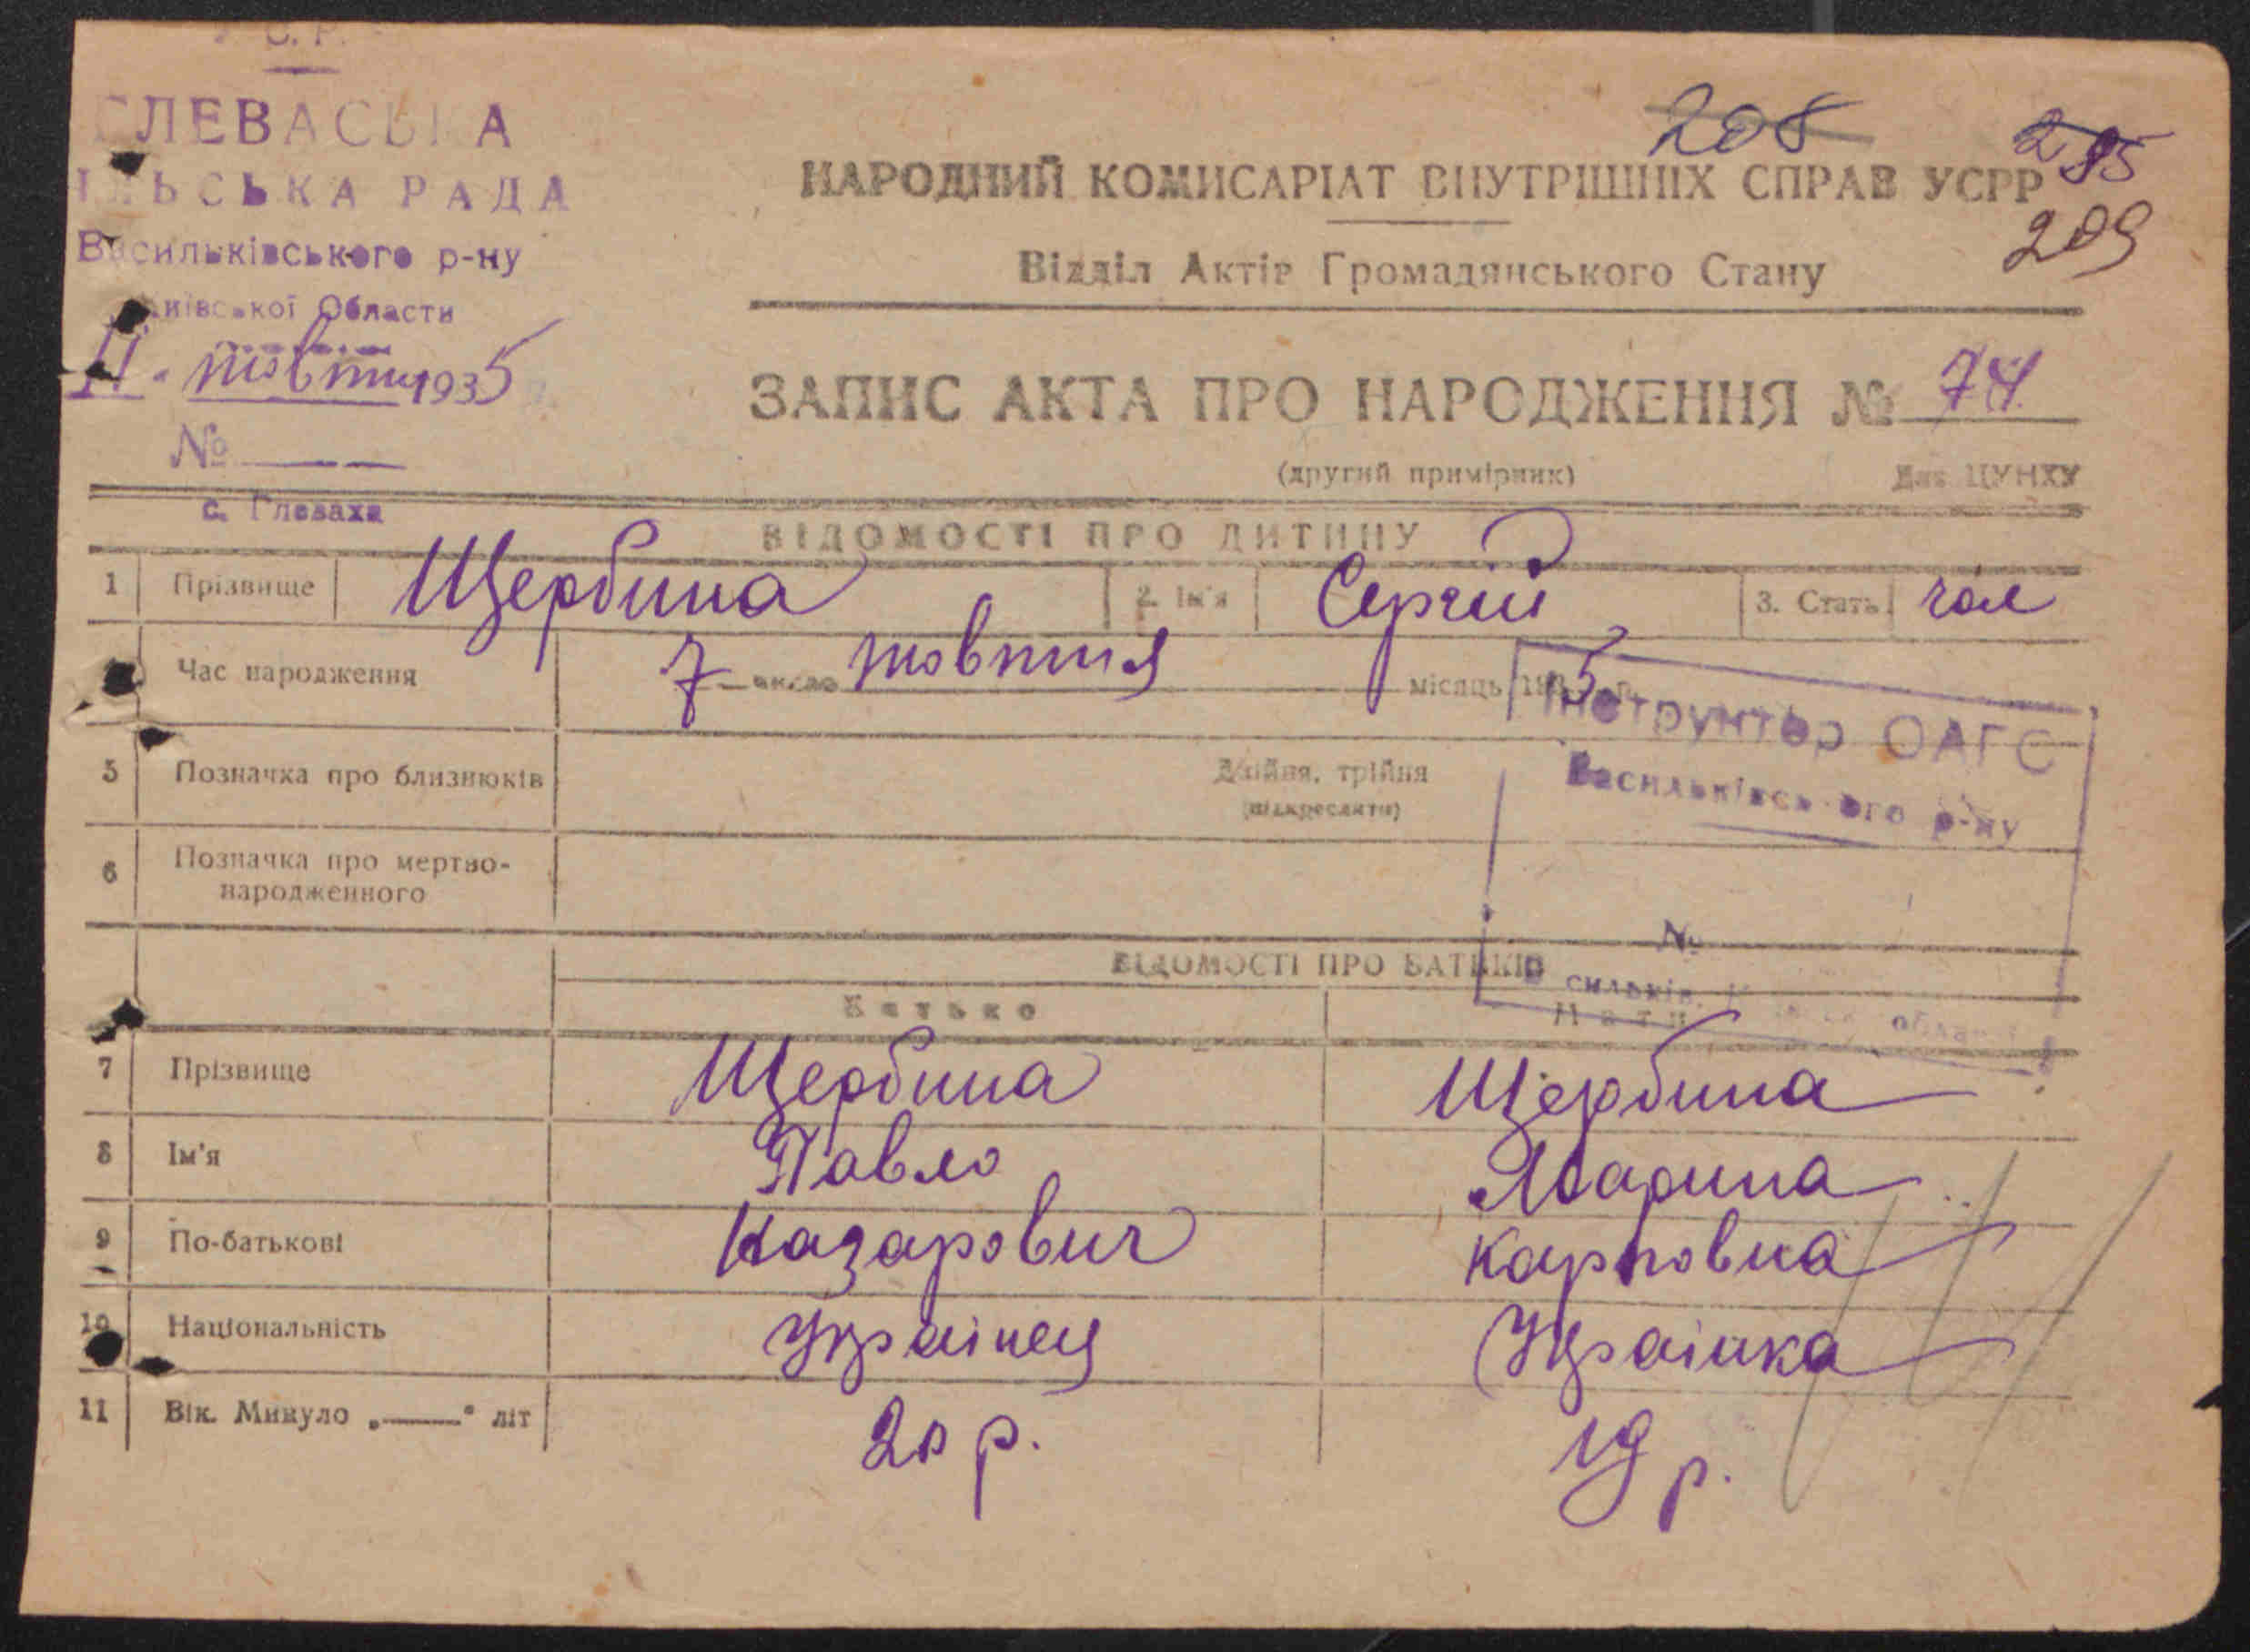 У.С.Р.Р.
ГЛЕВАСЬКА
СІЛЬСЬКА РАДА
Васильківського р-ну
Київської Области
11 жовтня 1935
№
с. Глеваха
208
295
209
НАРОДНИЙ КОМИСАРІАТ ВНУТРІШНІХ СПРАВ УСРР
Відділ Актів Громадянського Стану
ЗАПИС АКТА ПРО НАРОДЖЕННЯ № 74
(другий примірник) Для ЦУНХУ
ВІДОМОСТІ ПРО ДИТИНУ
1 Прізвище Щербина 2. Ім'я Сергій 3. Стать чол
Час народження 7 числа жовтня місяць 1935 р.
Інструктор ОАГС
Васильківського р-ну
5 Позначка про близнюків Двійня, трійня
(підкреслити)
6 Позначка про мертво-
народженного
№
ВІДОМОСТІ ПРО БАТЬКІВ
Батько Мати
7 Прізвище Щербина Щербина
8 Ім'я Павло Марина
9 По-батькові Назарович Карповна
10 Національність Українец Українка
11 Вік. Минуло „——" літ 20 р. 19 р.